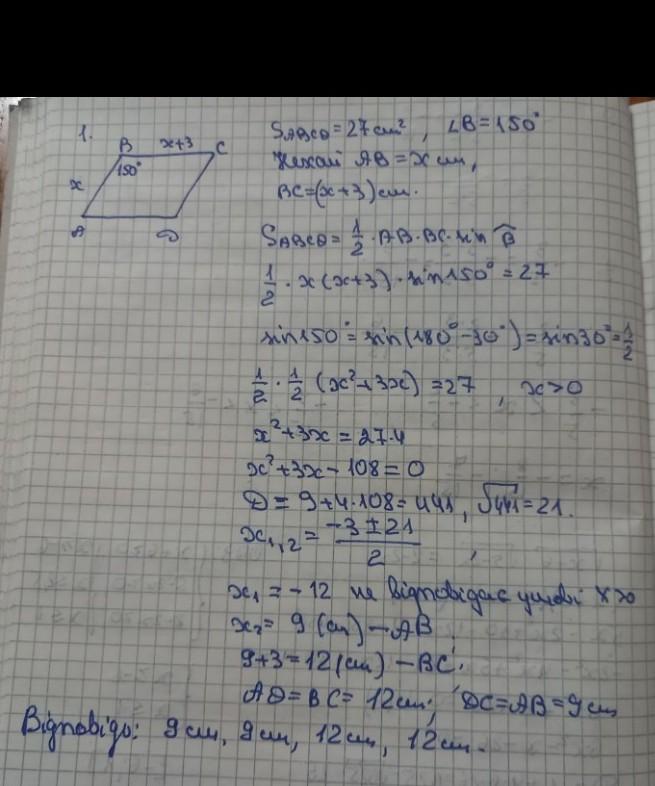 1.
B x+3 C
150°
x
A D
S_ABCD = 27 см², ∠B = 150°
Нехай AB = x см,
BC = (x+3) см.
S_ABCD = 1/2 · AB · BC · sin B̂
1/2 · x(x+3) · sin150° = 27
sin150° = sin(180° - 30°) = sin30° = 1/2
1/2 · 1/2 (x² + 3x) = 27, x > 0
x² + 3x = 27·4
x² + 3x - 108 = 0
D = 9 + 4·108 = 441, √441 = 21.
x₁,₂ = (-3 ± 21)/2,
x₁ = -12 не відповідає умові x>0
x₂ = 9 (см) – AB.
9+3 = 12 (см) – BC.
AD = BC = 12 см; DC = AB = 9 см
Відповідь: 9 см, 9 см, 12 см, 12 см.